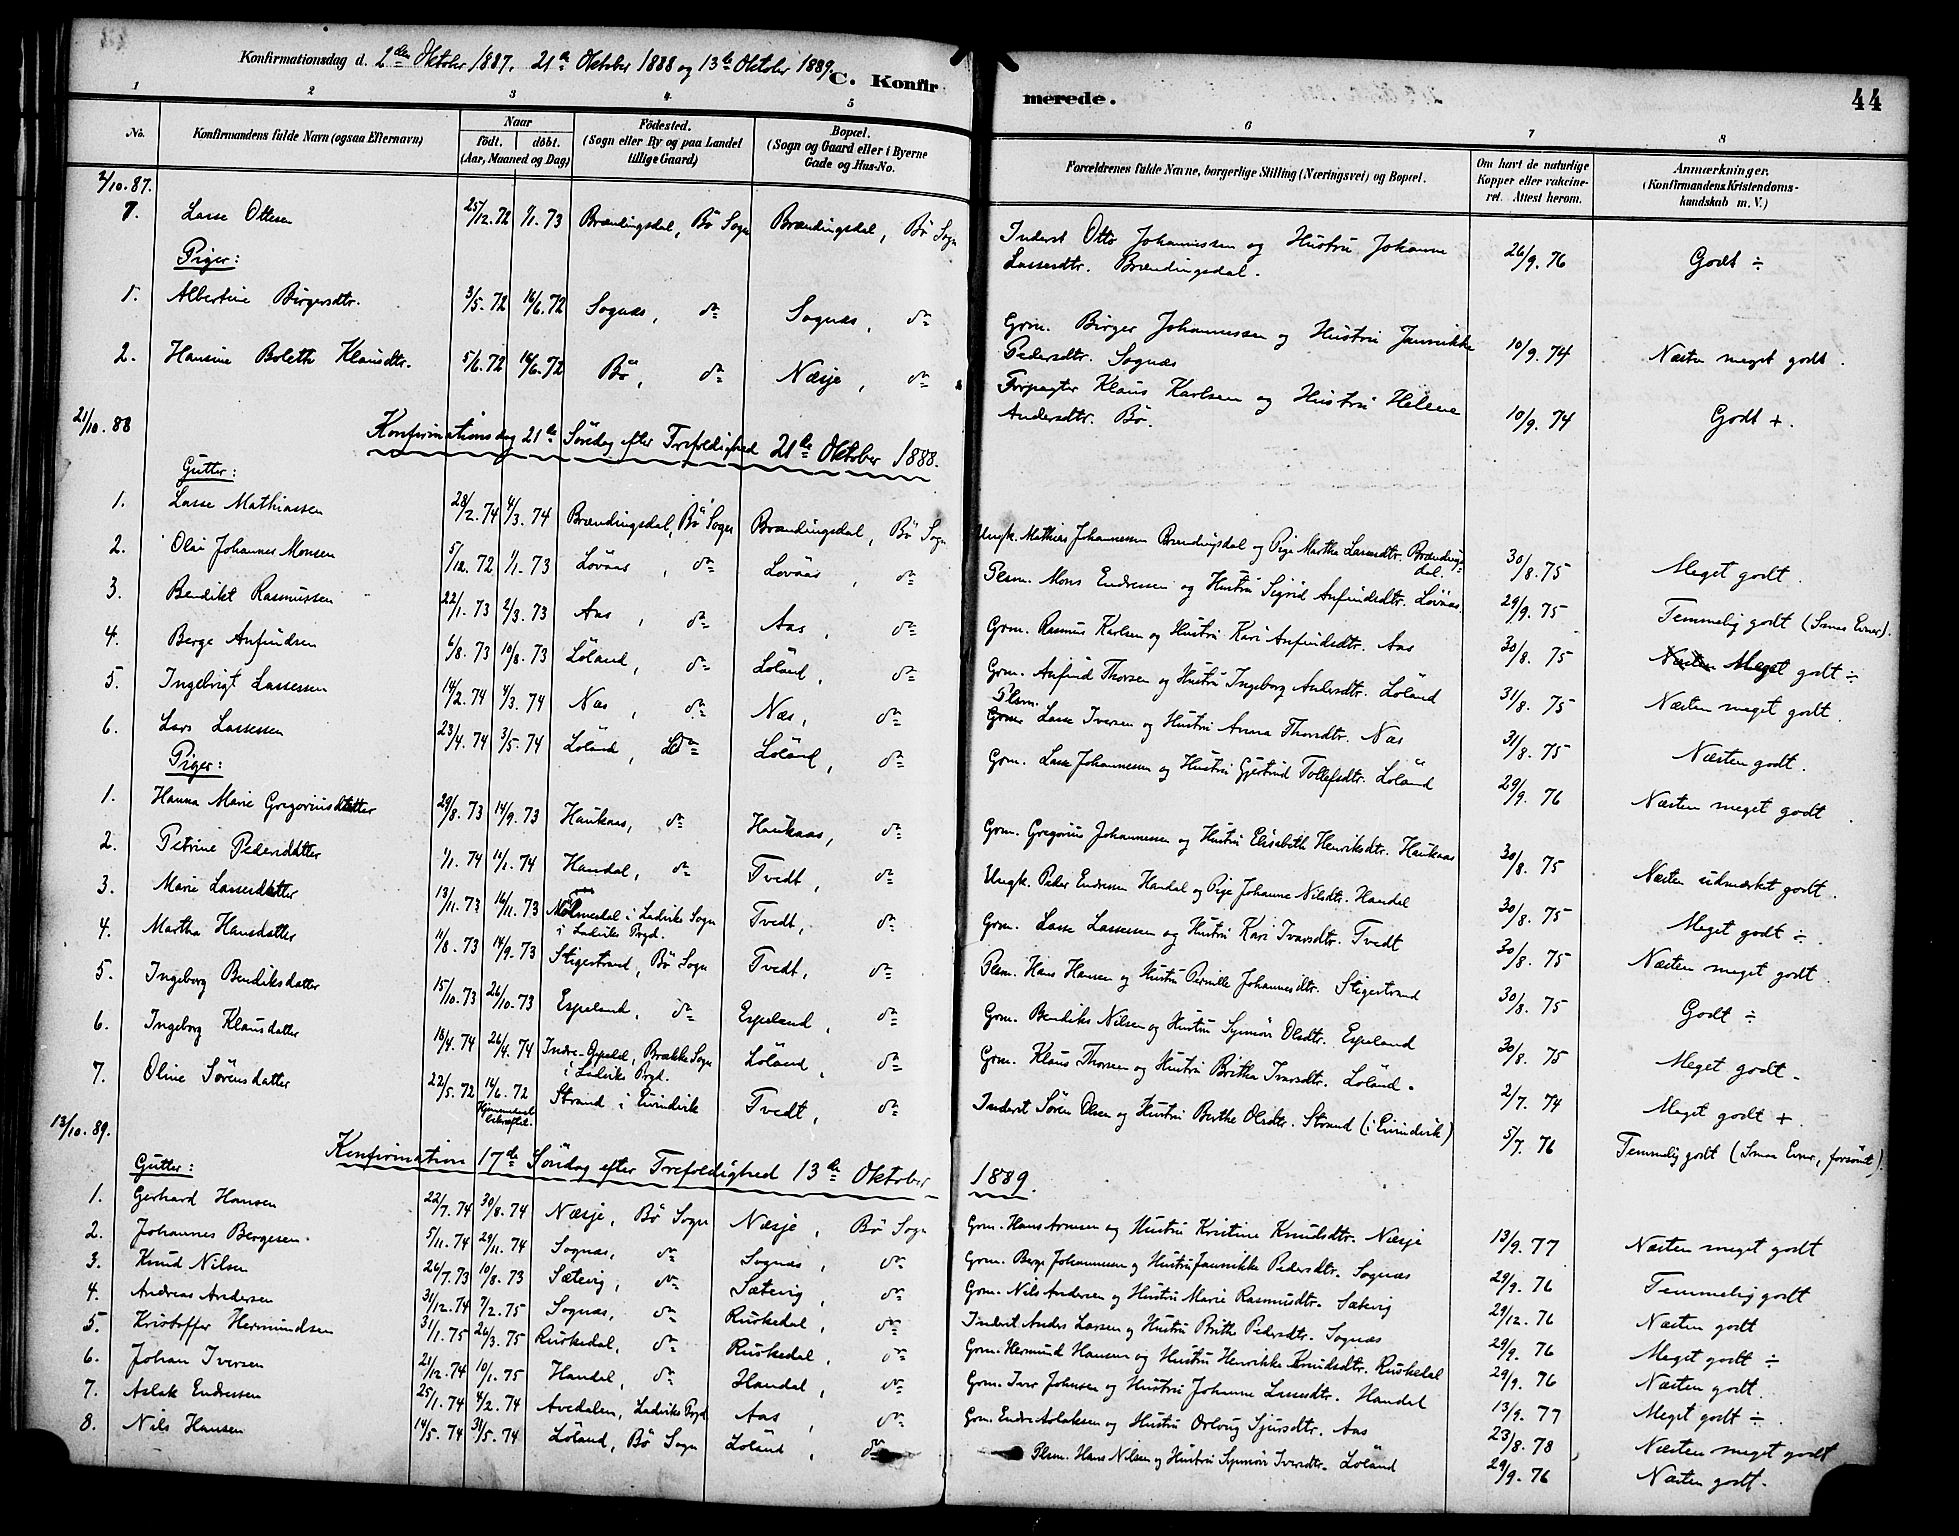 Konfirmationsdag d. 2den Oktober 1887. 21de Oktober 1888 og 13de Oktober 1889. C. Konfirmerede. 44
1 2 3 4 5 6 7 8
No. Konfirmandens fulde Navn (ogsaa Efternavn) Naar födt. döbt. (Aar, Maaned og Dag) Födested. (Sogn eller By og paa Landet tillige Gaard) Bopæl. (Sogn og Gaard eller i Byerne Gade og Hus-No. Forældrenes fulde Navne, borgerlige Stilling (Næringsvei) og Bopæl. Om havt de naturlige Kopper eller vakcineret. Attest herom. Anmærkninger. (Konfirmandens Kristendomskundskab m. V.)
2/10. 87.
7. Lasse Ottesen 25/12. 72 1/1. 73 Brændingsdal, Bö Sogn Brændingsdal, Bö Sogn Inderst Otto Johannessen og Hustru Johanne Lassesdtr. Brændingsdal. 26/9. 76 Godt ÷
Piger:
1. Albertine Birgersdtr. 3/5. 72 16/6. 72 Sognæs, do Sognæs, do Grm. Birger Johannessen og Hustru Jannikke Pedersdtr. Sognæs 10/9. 74 Næsten meget godt.
2. Hansine Bolette Klausdtr. 5/6. 72 16/6. 72 Bö, do Næsje, do Forpagter Klaus Karlsen og Hustru Helene Andersdtr. Bö. 10/9. 74 Godt +.
21/10. 88 Konfirmationsdag 21de Söndag efter Trefoldighed 21de Oktober 1888.
Gutter:
1. Lasse Mathiassen 28/2. 74 4/3. 74 Brændingsdal, Bö Sogn Brændingsdal, Bö Sogn Ungk. Mathias Johannessen Brændingsdal og Pige Martha Lassesdtr. Brændingsdal. 30/8. 75 Meget godt.
2. Olai Johannes Monsen 5/12. 72 1/1. 73 Lövaas, do Lovaas, do Plsm. Mons Endresen og Hustru Sigrid Anfindsdtr. Lövaas. 29/9. 75 Temmelig godt (Smaa Evner).
3. Bendikt Rasmussen 22/1. 73 2/3. 73 Aas, do Aas, do Grm. Rasmus Karlsen og Hustru Kari Anfindsdtr. Aas 30/8. 75 Næsten Meget godt ÷
4. Berge Anfindsen 6/8. 73 10/8. 73 Löland, do Löland, do Grm. Anfind Thorsen og Hustru Ingeborg Andersdtr. Löland 31/8. 75 Næsten meget godt.
5. Ingebrigt Lassessen 14/2. 74 4/3. 74 Næs, do Næs, do Plsm. Grm. Lasse Iversen og Hustru Anna Thorsdtr. Næs 31/8. 75 Næsten godt.
6. Lars Lassessen 23/4. 74 3/5. 74 Löland, do Löland, do Grm. Lasse Johannessen og Hustru Gjertrud Tollefsdtr. Löland 29/9. 76 Næsten meget godt.
Piger:
1. Hanna Marie Gregoriusdatter 29/8. 73 14/9. 73 Haukaas, do Haukaas, do Grm. Gregorius Johannessen og Hustru Elisabeth Henriksdtr. Haukaas 30/8. 75 Næsten udmærket godt.
2. Petrine Pedersdatter 1/1. 74 11/1. 74 Handal, do Tvedt, do Ungk. Peder Endresen Handal og Pige Johanne Nilsdtr. Handal 30/8. 75 Meget godt ÷.
3. Marie Lassesdatter 13/11. 73 16/11. 73 i Ladviks Sogn i Ladviks Prgd. Tvedt, do Grm. Lasse Lassessen og Hustru Kari Ivarsdtr. Tvedt 30/8. 75 Næsten meget godt.
4. Martha Hansdatter 11/8. 73 14/9. 73 Stigestrand, Bö Sogn Tvedt, do Plsm. Hans Hansen og Hustru Pernille Johannesdtr. Stigestrand 30/8. 75 Godt ÷
5. Ingeborg Bendiksdatter 15/10. 73 26/10. 73 Espeland, do Espeland, do Grm. Bendiks Nilsen og Hustru Synnöv Olsdtr. Espeland 30/8. 75 Meget godt.
6. Ingeborg Klausdatter 18/4. 74 26/4. 74 Indre-Oppedal, Brække Sogn i Ladviks Prgd. Löland, do Grm. Klaus Thorsen og Hustru Britha Ivarsdtr. Löland. 2/7. 74 Meget godt +
7. Oline Sörensdatter 22/5. 72 14/6. 72 Hjemmedöbt bekræftet. Strand i Evindvik Tvedt, do Inderst Sören Olsen og Hustru Berthe Olsdtr. Strand (i Evindvik) 5/7. 76 Temmelig godt (Smaa Evner, forsömt).
13/10. 89. Konfirmation 17de Söndag efter Trefoldighed 13de Oktober 1889.
Gutter:
1. Gerhard Hansen 22/7. 74 30/8. 74 Næsje, Bö Sogn Næsje, Bö Sogn Grm. Hans Arnesen og Hustru Kristine Knudsdtr. Næsje 13/9. 77 Næsten meget godt
2. Johannes Bergesen. 5/11. 74 29/11. 74 Sognæs, do Sognæs, do Grm. Berge Johannessen og Hustru Jannikke Pedersdtr. Sognæs 29/9. 76 Temmelig godt
3. Knud Nilsen 26/7. 73 10/8. 73 Sætevig, do Sætevig, do Grm. Nils Andersen og Hustru Marie Rasmusdtr. Sætevig 29/12. 76 Næsten godt
4. Andreas Andersen 31/12. 74 7/2. 75 Sognæs, do Ruskedal, do Inderst Anders Larsen og Hustru Brithe Pedersdtr. Sognæs 29/9. 76 Meget godt ÷
5. Kristoffer Hermundsen 31/1. 75 26/3. 75 Ruskedal, do Ruskedal, do Grm. Hermund Hansen og Hustru Henrikke Knudsdtr. Ruskedal 29/9. 76 Næsten godt.
6. Johan Iversen 21/12. 74 10/1. 75 Handal, do Handal, do Grm. Iver Johnsen og Hustru Johanne Lassesdtr. Handal 13/9. 77 Meget godt ÷.
7. Aslak Endresen 25/1. 74 4/2. 74 Avedalen, Ladviks Prgd Aas, do Grm. Endre Aslaksen og Hustru Orlaug Sjursdtr. Aas 23/8. 78 Næsten meget godt
8. Nils Hansen 14/5. 74 31/5. 74 Löland, Bö Sogn Löland, do Plsm. Hans Nilsen og Hustru Synnöv Iversdtr. Löland 29/9. 76 Næsten godt.